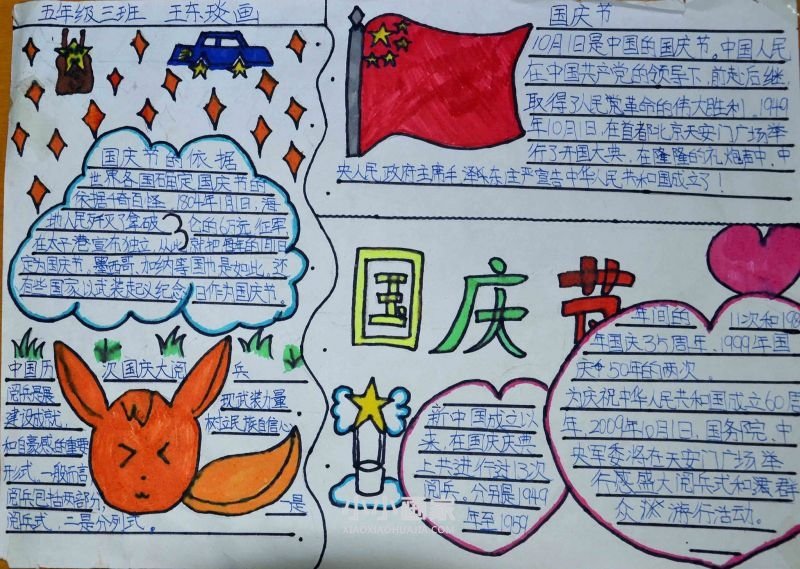 五年级三班 王琰画
国庆节的依据
世界各国确定国庆节的
依据千奇百怪。1804年1月1日,海
地人民歼灭了拿破 仑的6万远征军
在太子港宣布独立,从此就把每年的1月1日
定为国庆节,墨西哥、加纳等国也是如此,还
有些国家以武装起义纪念日作为国庆节。
中国历 次国庆大阅 兵
阅兵是展 现武装力量
建设成就, 树立民族自信心
和自豪感的重要
形式,一般而言
阅兵包括两部分, 一是
阅兵式,二是分列式。
国庆节
10月1日是中国的国庆节。中国人民
在中国共产党的领导下,前赴后继,
取得了人民革命的伟大胜利。1949
年10月1日,在首都北京天安门广场举
行了开国大典,在隆隆的礼炮声中,中
央人民政府主席毛泽东庄严宣告中华人民共和国成立了!
国庆节
新中国成立以
来,在国庆庆典
上共进行过13次
阅兵。分别是1949
年至1959
年间的 11次和198
年国庆35周年、1999年国
庆 50年的两次。
为庆祝中华人民共和国成立60周
年,2009年10月1日,国务院、中
央军委将在天安门广场举
行盛大阅兵式和群
众 游行活动。
小小画家
XIAOXIAOHUAJIA.COM